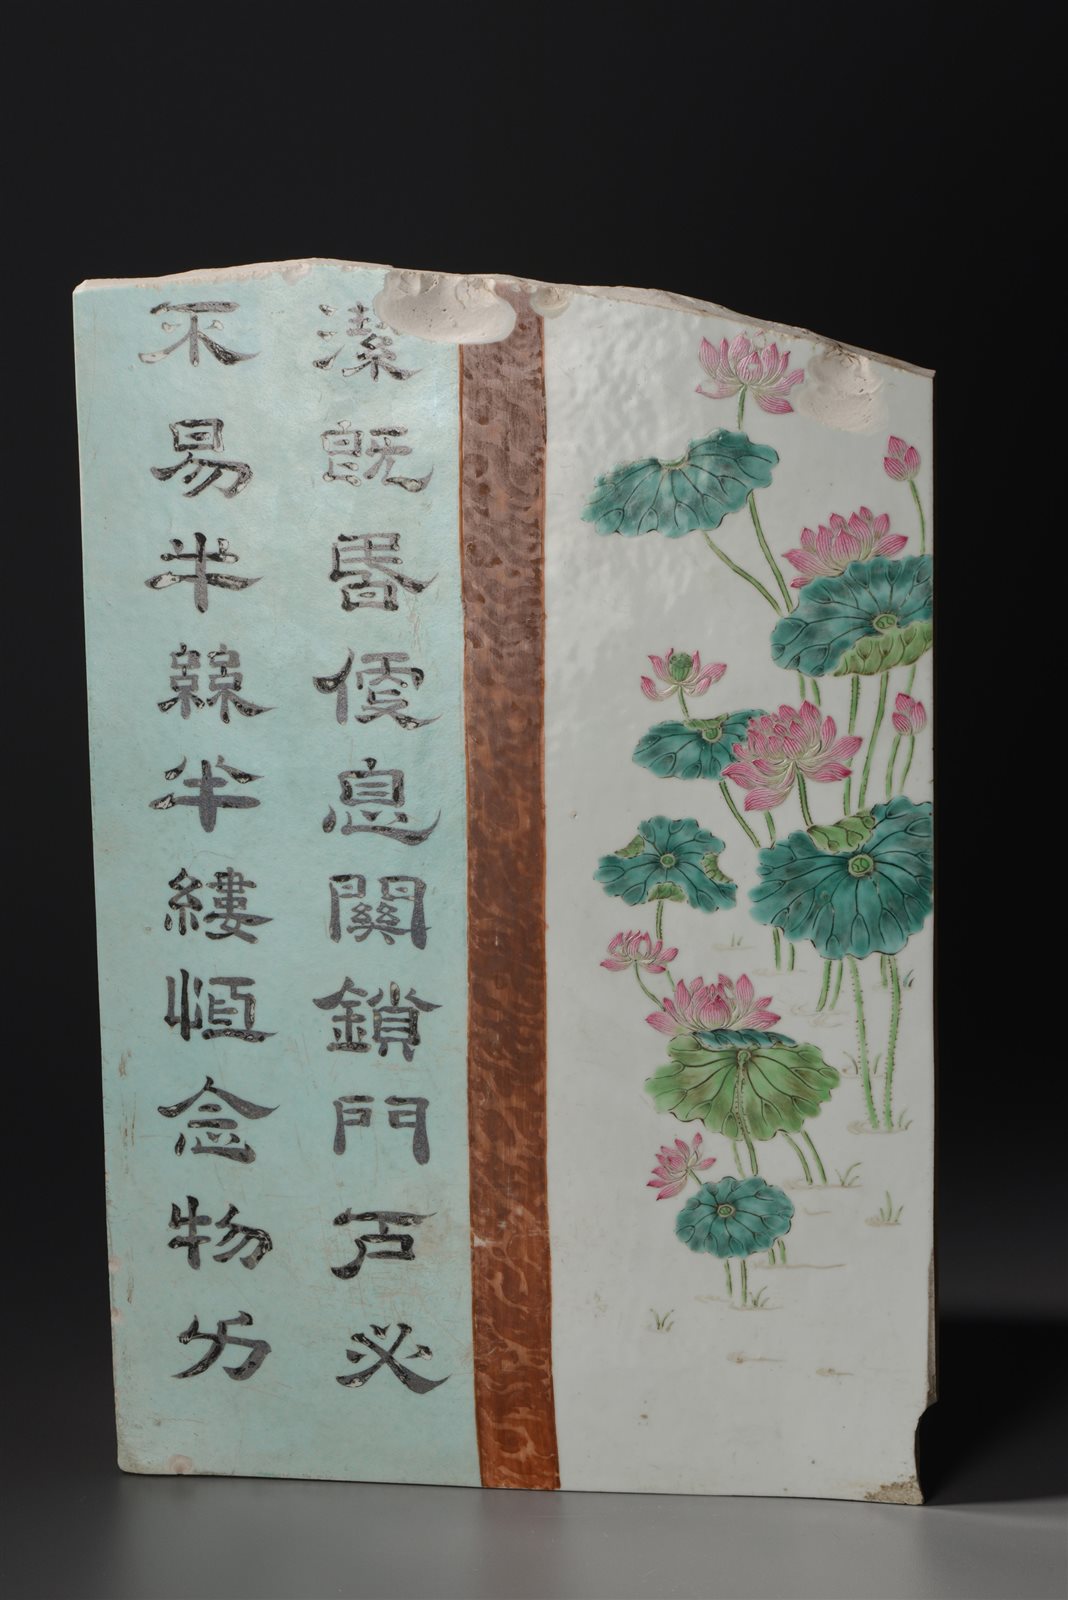 潔既昏便息關鎖門戶必
不易半絲半縷恆念物力